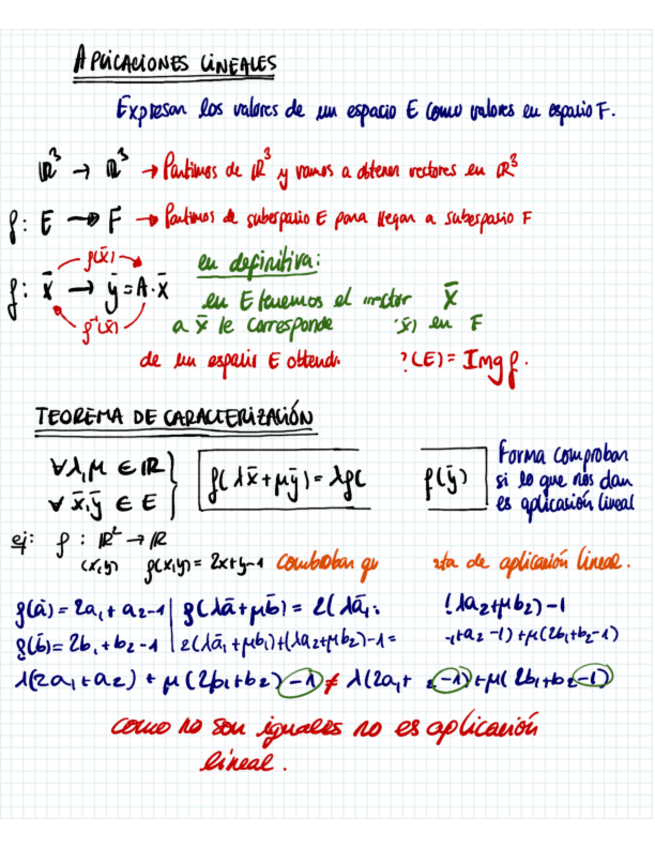 APLICACIONES LINEALES
Expresan los valores de un espacio E como valores en espacio F.
ℝ³ → ℝ³ → Partimos de ℝ³ y vamos a obtener vectores en ℝ³
f: E → F → Partimos de subespacio E para llegar a subespacio F
f(x̄)
en definitiva:
f: x̄ → ȳ = A·x̄
f⁻¹(x̄)
en E tenemos el vector x̄
a x̄ le corresponde x̄) en F
de un espacio E (E) = Img f.
TEOREMA DE CARACTERIZACIÓN
∀λ,μ ∈ ℝ}
∀ x̄,ȳ ∈ E
f(λx̄+μȳ) = λf( f(ȳ)
Forma comprobar
si lo que nos dan
es aplicación lineal
ej: f: ℝ² → ℝ
(x,y) f(x,y) = 2x+y-1 comprobar qu ata de aplicación lineal.
f(ā) = 2a₁+a₂-1 | f(λā+μb̄) = 2(λa₁ λa₂+μb₂)-1
f(b̄) = 2b₁+b₂-1 | 2(λa₁+μb₁)+(λa₂+μb₂)-1 = +a₂-1)+μ(2b₁+b₂-1)
λ(2a₁+a₂) + μ(2b₁+b₂)-1 ≠ λ(2a₁+ ₂-1)+μ(2b₁+b₂-1)
como no son iguales no es aplicación
lineal.